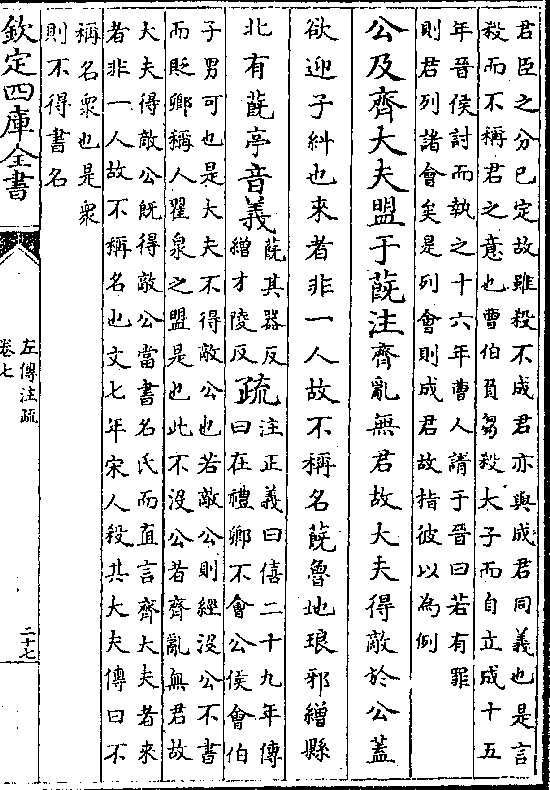 君臣之分已定故雖殺不成君亦與成君同義也是言
殺而不稱君之意也曹伯負芻殺大子而自立成十五
年晉侯討而執之十六年曹人請于晉曰若有罪
則君列諸會矣是列會則成君故指彼以為例
公及齊大夫盟于蔇注齊亂無君故大夫得敵於公蓋
欲迎子糾也來者非一人故不稱名蔇魯地琅邪繒縣
北有蔇亭音義蔇其器反
繒才陵反疏注正義曰僖二十九年傳
曰在禮卿不會公侯會伯
子男可也是大夫不得敵公也若敵公則經沒公不書
而貶卿稱人翟泉之盟是也此不沒公者齊亂無君故
大夫得敵公既得敵公當書名氏而直言齊大夫者來
者非一人故不稱名也文七年宋人殺其大夫傳曰不
稱名衆也是衆
則不得書名
欽定四庫全書
左傳注疏
卷七
二十七